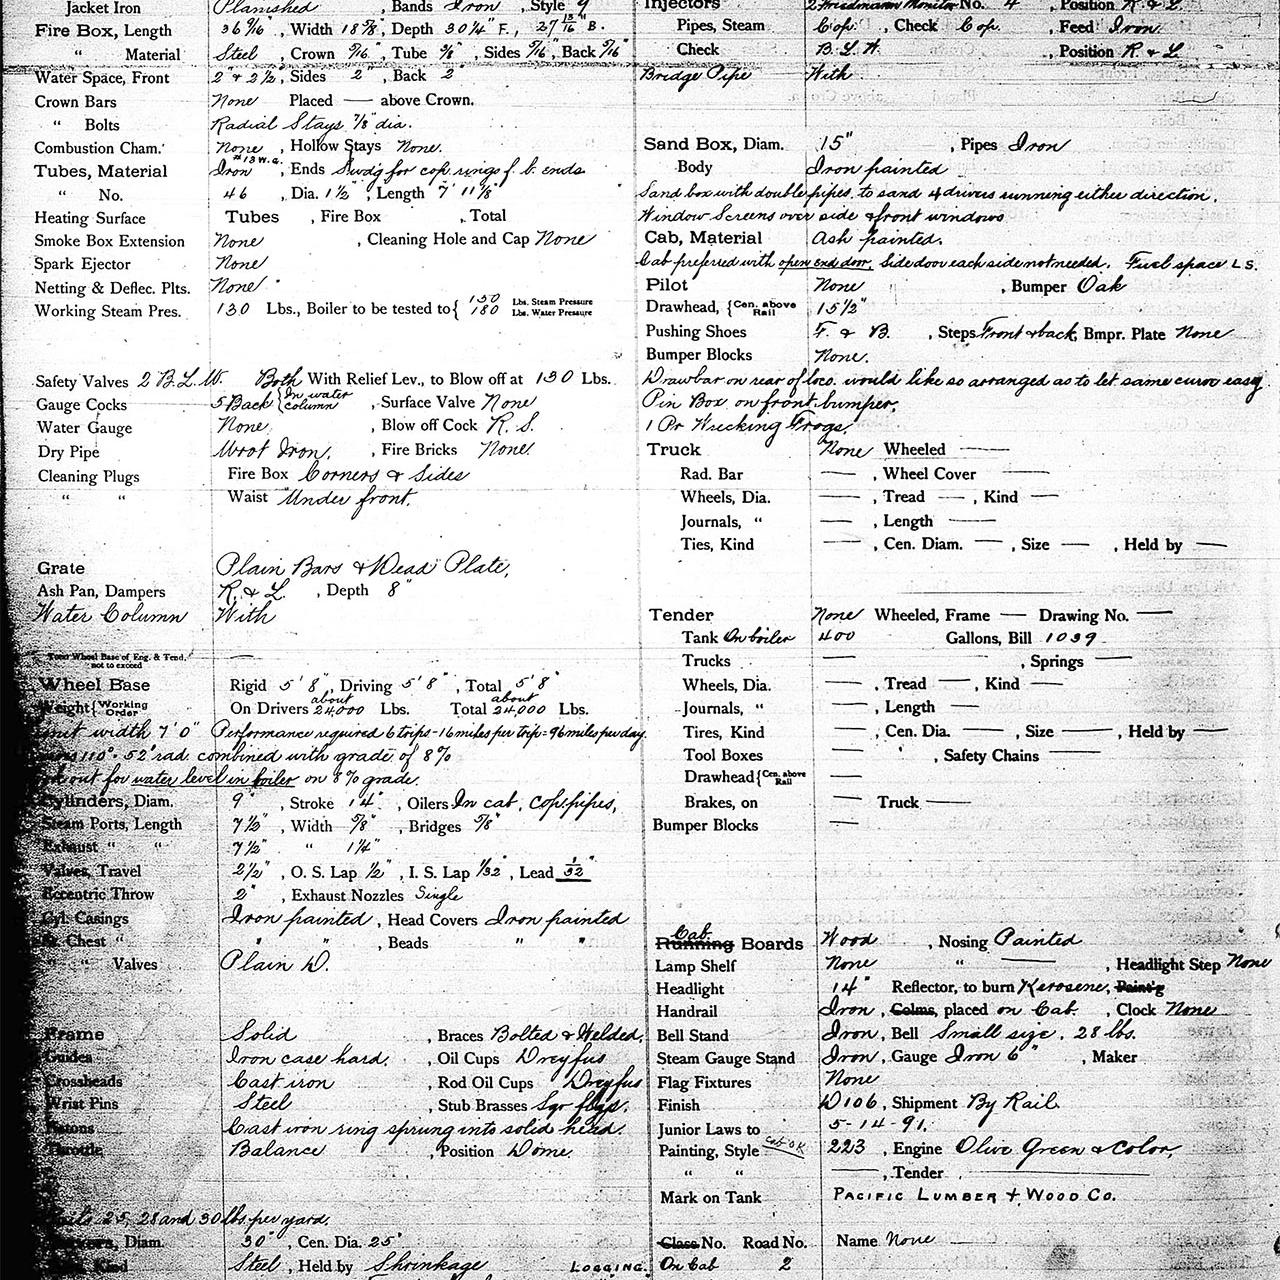 Jacket Iron Planished , Bands Iron , Style 9
Fire Box, Length 36 9/16" , Width 18 7/8" , Depth 30 1/4" F., 27 13/16" B.
" Material Steel , Crown 5/16" , Tube 3/8" , Sides 5/16" , Back 5/16"
Water Space, Front 2" & 2 1/2 , Sides 2" , Back 2
Crown Bars None Placed — above Crown.
" Bolts Radial Stays 7/8" dia.
Combustion Cham. None , Hollow Stays None.
Tubes, Material Iron #13 W.G. , Ends Swdg for cop. rings f. b. ends
" No. 46 , Dia. 1 1/2" , Length 7' 11 1/8"
Heating Surface Tubes , Fire Box , Total
Smoke Box Extension None , Cleaning Hole and Cap None
Spark Ejector None
Netting & Deflec. Plts. None
Working Steam Pres. 130 Lbs., Boiler to be tested to { 150 Lbs. Steam Pressure
180 Lbs. Water Pressure
Safety Valves 2 B.L.W. Both With Relief Lev., to Blow off at 130 Lbs.
Gauge Cocks 5 Back { In water column , Surface Valve None
Water Gauge None , Blow off Cock R. S.
Dry Pipe Wrot Iron. , Fire Bricks None.
Cleaning Plugs Fire Box Corners & Sides
" " Waist Under front.
Grate Plain Bars & Dead Plate,
Ash Pan, Dampers R. & L. , Depth 8"
Water Column With
Total Wheel Base of Eng. & Tend. not to exceed —
Wheel Base Rigid 5' 8" , Driving 5' 8" , Total 5' 8"
Weight { Working Order On Drivers about 24,000 Lbs. Total about 24,000 Lbs.
width 7' 0" Performance required 6 trips - 16 miles per trip = 96 miles per day.
110° - 52' rad. combined with grade of 8%
out for water level in boiler on 8% grade.
Cylinders, Diam. 9" , Stroke 14" , Oilers In cab, cop. pipes,
Steam Ports, Length 7 1/2" , Width 5/8" , Bridges 5/8"
Exhaust " " 7 1/2" " 1 1/4"
Valves, Travel 2 1/2" , O. S. Lap 1/2" , I. S. Lap 1/32" , Lead 1/32"
Eccentric Throw 2" , Exhaust Nozzles Single
Cyl. Casings Iron painted , Head Covers Iron painted
St. Chest " " " , Beads " "
" " Valves Plain D.
Frame Solid , Braces Bolted & Welded.
Guides Iron case hard. , Oil Cups Dreyfus
Crossheads Cast iron , Rod Oil Cups Dreyfus
Wrist Pins Steel , Stub Brasses Sqr flgs.
Pistons Cast iron ring sprung into solid head.
Throttle Balance , Position Dome.
Rails 25, 28 and 30 lbs per yard.
Diam. 30" , Cen. Dia. 25"
Kind Steel , Held by Shrinkage Logging.
Injectors 2 Friedmann Monitor No. 4 , Position R. & L.
Pipes, Steam Cop. , Check Cop. , Feed Iron.
Check B. L. W. , Position R & L
Bridge Pipe With
Sand Box, Diam. 15" , Pipes Iron
Body Iron painted
Sand box with double pipes, to sand 4 drivers running either direction.
Window Screens over side & front windows
Cab, Material Ash painted.
Cab preferred with open end door. Side door each side not needed. Fuel space L S.
Pilot None , Bumper Oak
Drawhead, { Cen. above Rail 15 1/2"
Pushing Shoes F. & B. , Steps Front & back, Bmpr. Plate None
Bumper Blocks None.
Drawbar on rear of loco. would like so arranged as to let same curve easy
Pin Box on front bumper.
1 Pr Wrecking Frogs.
Truck None Wheeled —
Rad. Bar — , Wheel Cover —
Wheels, Dia. — , Tread — , Kind —
Journals, " — , Length —
Ties, Kind — , Cen. Diam. — , Size — , Held by —
Tender None Wheeled, Frame — Drawing No. —
Tank On boiler 400 Gallons, Bill 1039
Trucks , Springs —
Wheels, Dia. — , Tread — , Kind —
Journals, " — , Length —
Tires, Kind — , Cen. Dia. — , Size — , Held by —
Tool Boxes , Safety Chains —
Drawhead { Cen. above Rail —
Brakes, on — Truck —
Bumper Blocks —
Cab
Running Boards Wood , Nosing Painted
Lamp Shelf None " — , Headlight Step None
Headlight 14" Reflector, to burn Kerosene, Paint'g
Handrail Iron , Colms, placed on Cab. , Clock None
Bell Stand Iron , Bell Small size. 28 lbs.
Steam Gauge Stand Iron , Gauge Iron 6" , Maker
Flag Fixtures None
Finish D106 , Shipment By Rail.
Junior Laws to 5-14-91.
Painting, Style Cab OK 223 , Engine Olive Green & Color,
" " — , Tender —
Mark on Tank Pacific Lumber & Wood Co.
Class No. Road No. Name None —
On Cab 2